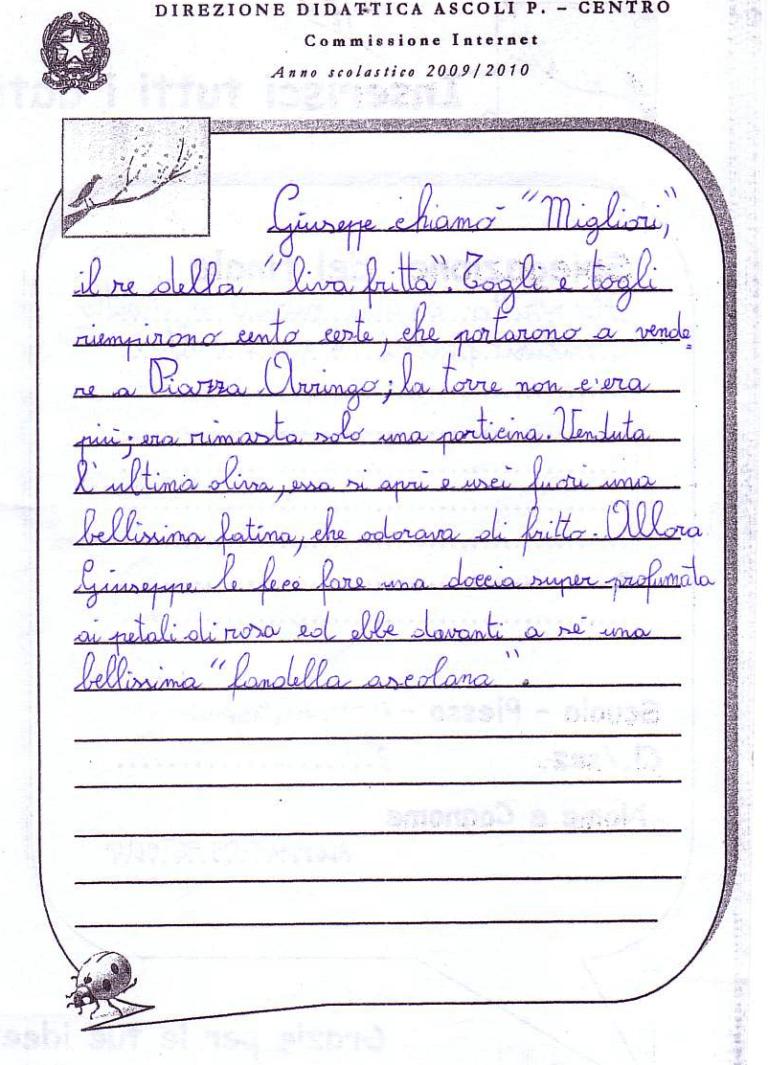 DIREZIONE DIDATTICA ASCOLI P. – CENTRO
Commissione Internet
Anno scolastico 2009/2010
Giuseppe chiamò "Migliori,"
il re della "liva fritta". Togli e togli
riempirono cento ceste, che portarono a vende
re a Piazza Arringo; la torre non c'era
più; era rimasta solo una porticina. Venduta
l'ultima oliva, essa si aprì e uscì fuori una
bellissima fatina, che odorava di fritto. Allora
Giuseppe le fece fare una doccia super profumata
ai petali di rosa ed ebbe davanti a sé una
bellissima "fandella ascolana".
Inserisci tutti i dati
Scuola - Plesso -
Cl./sez.
Nome e Cognome
Grazie per le tue idee